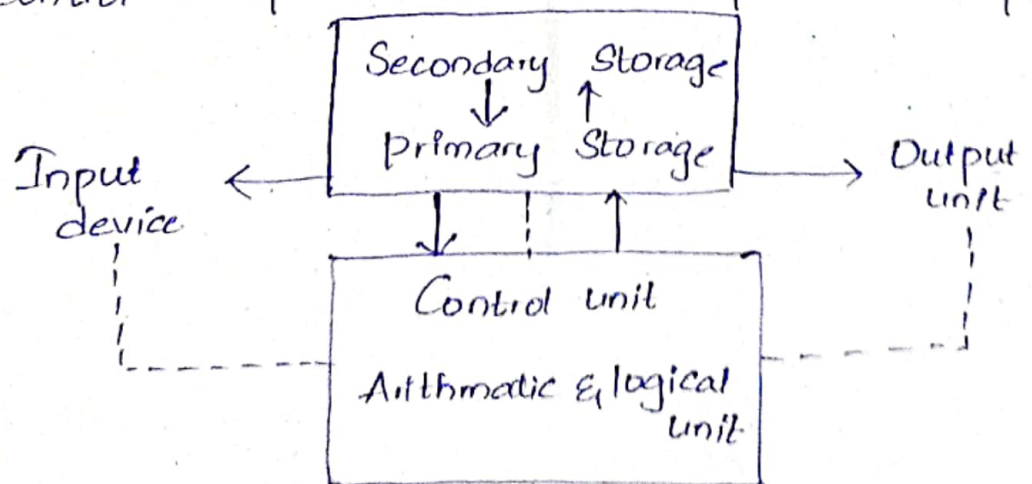 Secondary Storage
Primary Storage
Input
device
Output
unit
Control unit
Arithmatic & logical
unit